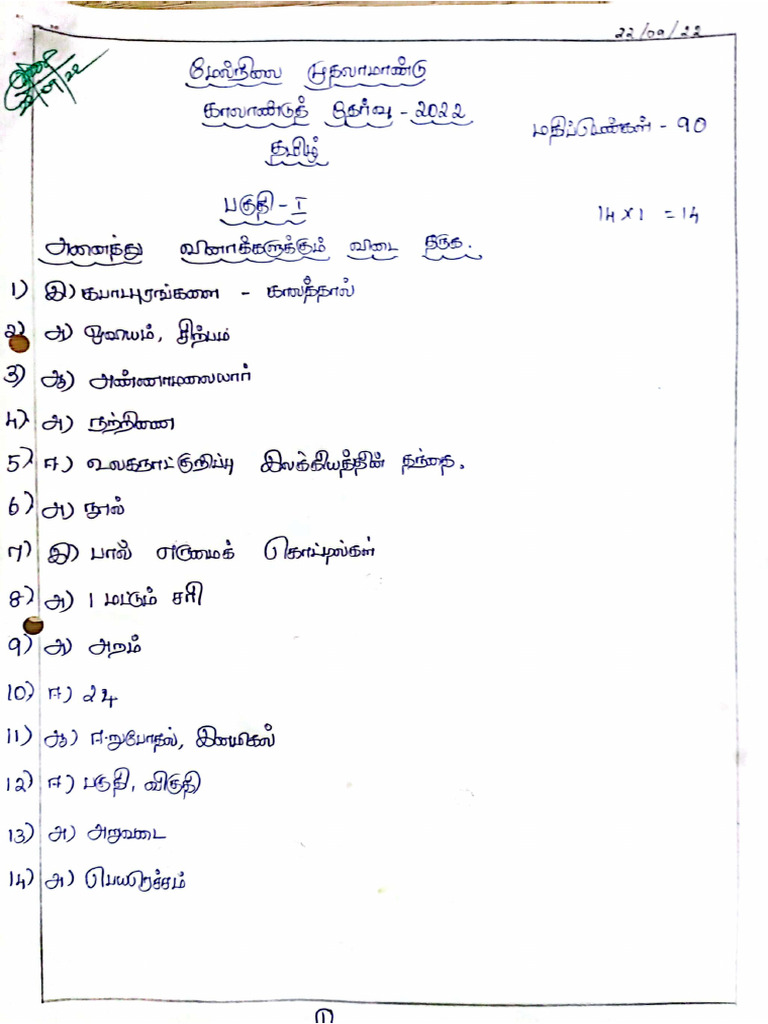 22/09/22
மேல்நிலை முதலாமாண்டு
காலாண்டுத் தேர்வு - 2022
மதிப்பெண்கள் - 90
தமிழ்
பகுதி - I
14 × 1 = 14
அனைத்து வினாக்களுக்கும் விடை தருக.
1) இ) கபாடபுரங்களை - காலத்தால்
2) அ) ஓவியம், சிற்பம்
3) ஆ) அண்ணாமலையார்
4) அ) நற்றிணை
5) ஈ) உலகநாட்குறிப்பு இலக்கியத்தின் தந்தை.
6) அ) நூல்
7) இ) பால் எருமைக் கொட்டில்கள்
8) அ) 1 மட்டும் சரி
9) அ) அறம்
10) ஈ) 24
11) ஆ) ஈறுபோதல், இனமிகல்
12) ஈ) பகுதி, விகுதி
13) அ) அறுவடை
14) அ) பெயரெச்சம்
1